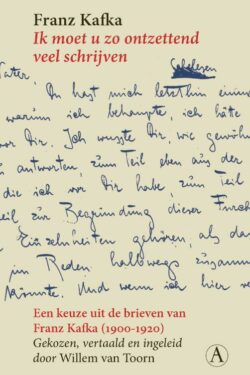 Franz Kafka
Ik moet u zo ontzettend
veel schrijven
Schelesen
Vater,
Du hast mich letzthin einma
warum ich behaupte, ich hätte
vor Dir. Ich wusste Dir, wie gewöhn
zu antworten, zum Teil eben aus der
die ich vor Dir habe, zum Teil
eil zur Begründung dieser Furch
Einzelheiten gehören, als da
im Reden halbwegs zusamm
könnte. Und wenn ich hier
Een keuze uit de brieven van
Franz Kafka (1900-1920)
Gekozen, vertaald en ingeleid
door Willem van Toorn
A